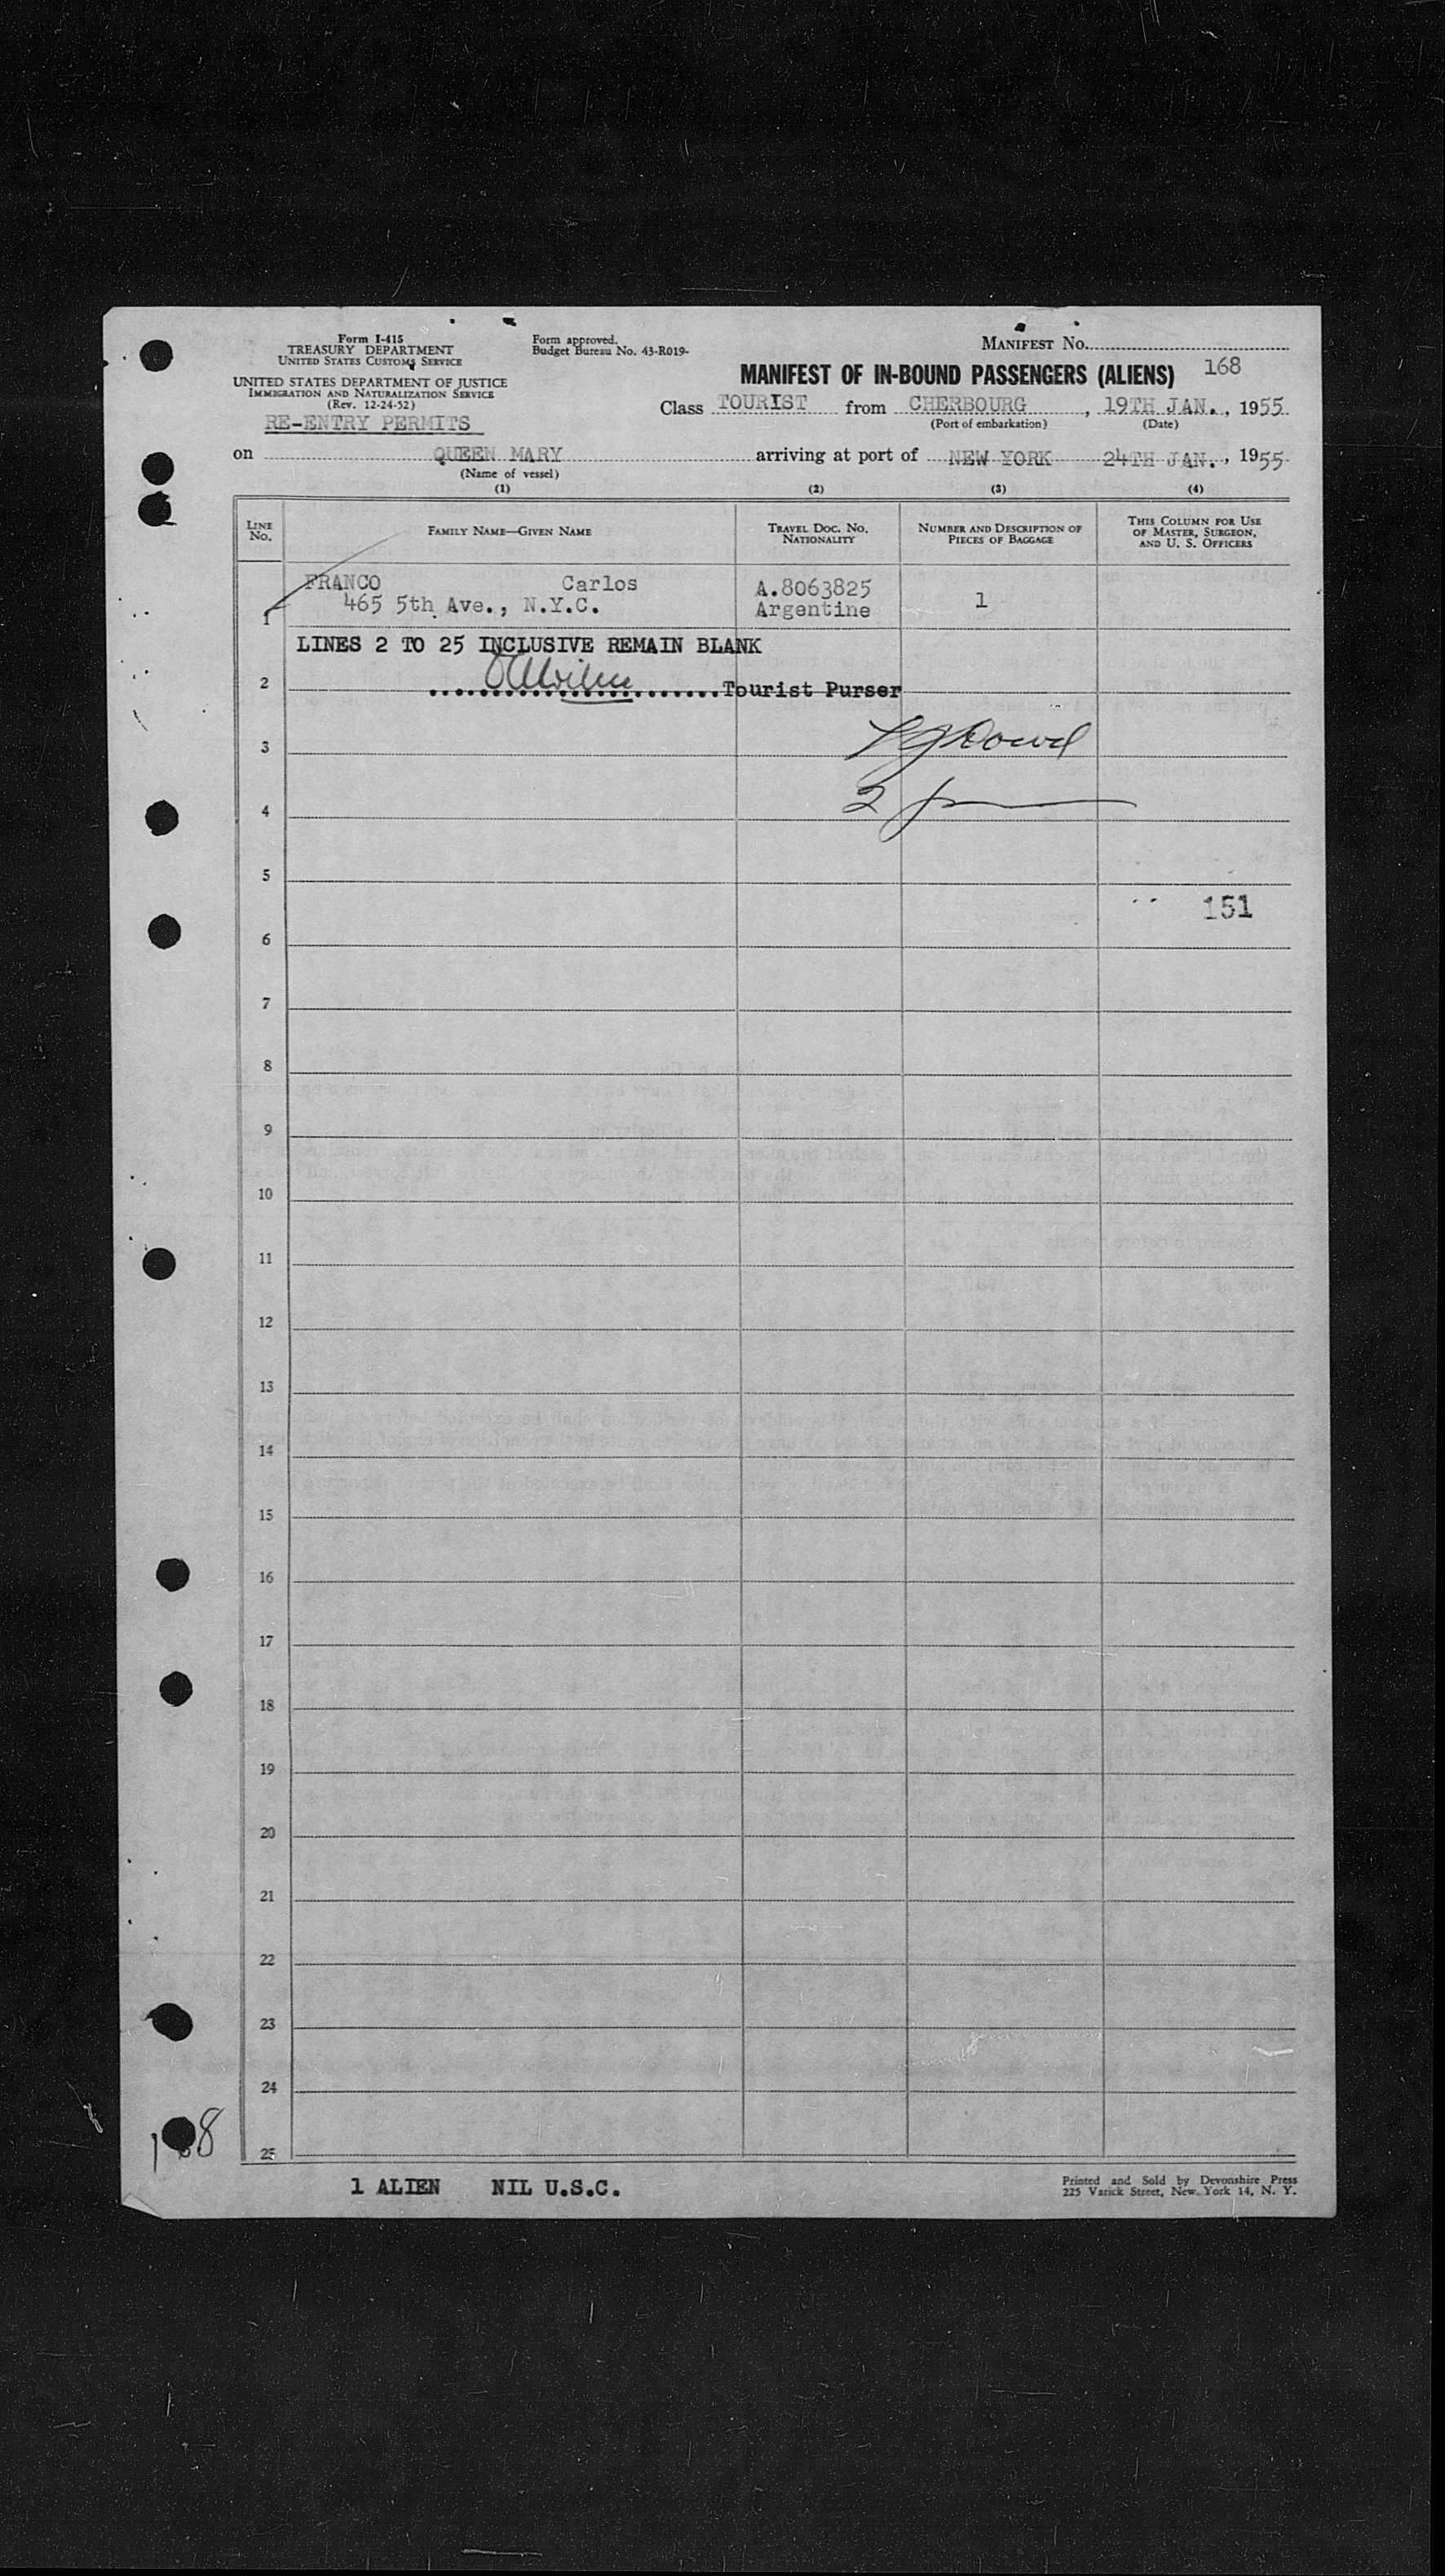 Form I-415
TREASURY DEPARTMENT
UNITED STATES CUSTOMS SERVICE
UNITED STATES DEPARTMENT OF JUSTICE
IMMIGRATION AND NATURALIZATION SERVICE
(Rev. 12-24-52)
RE-ENTRY PERMITS
Form approved.
Budget Bureau No. 43-R019-
MANIFEST NO.
MANIFEST OF IN-BOUND PASSENGERS (ALIENS) 168
Class TOURIST from CHERBOURG, 19TH JAN., 1955
(Port of embarkation) (Date)
on QUEEN MARY arriving at port of NEW YORK 24TH JAN., 1955
(Name of vessel)
(1) (2) (3) (4)
LINE NO. FAMILY NAME—GIVEN NAME TRAVEL DOC. NO. NATIONALITY NUMBER AND DESCRIPTION OF PIECES OF BAGGAGE THIS COLUMN FOR USE OF MASTER, SURGEON, AND U. S. OFFICERS
FRANCO Carlos A.8063825
1 465 5th Ave., N.Y.C. Argentine 1
LINES 2 TO 25 INCLUSIVE REMAIN BLANK
2 Tourist Purser
3
4 2
5
151
6
7
8
9
10
11
12
13
14
15
16
17
18
19
20
21
22
23
24
25
1 ALIEN NIL U.S.C.
Printed and Sold by Devonshire Press
225 Varick Street, New York 14, N. Y.